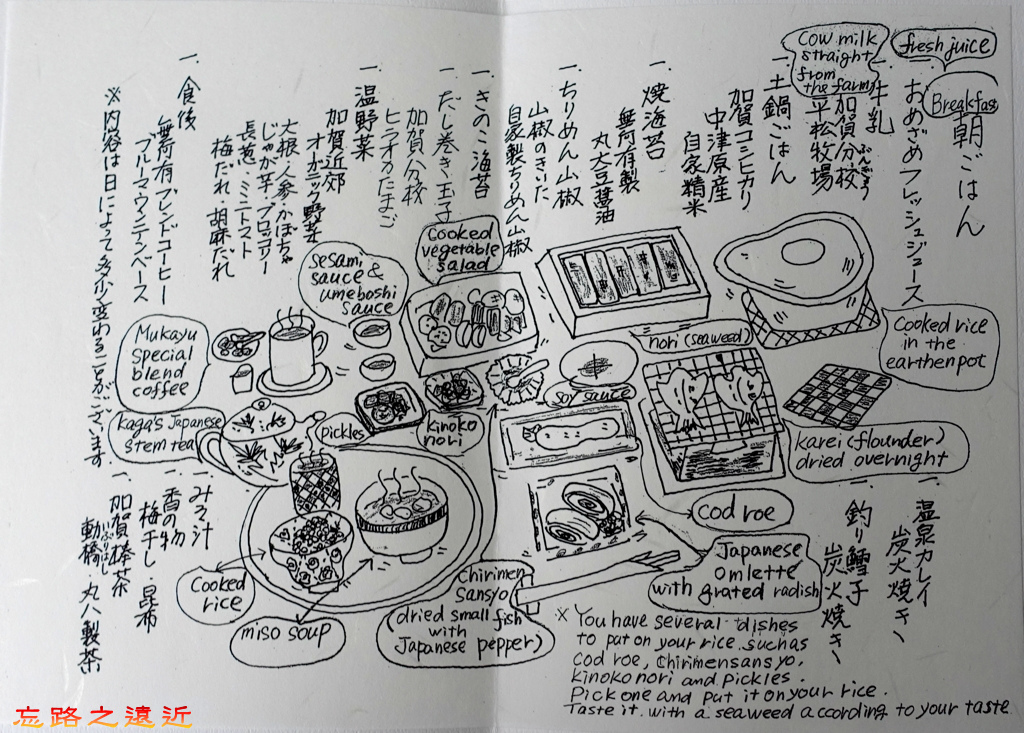 朝ごはん
Breakfast
一、おめざフレッシュジュース
fresh juice
一、牛乳
加賀分校
ぶんぎょう
平松牧場
cow milk
straight
from
the farm
一、土鍋ごはん
加賀コシヒカリ
中津原産
自家精米
一、焼海苔
無何有製
丸大豆醤油
一、ちりめん山椒
山椒のきいた
自家製ちりめん山椒
一、きのこ海苔
一、だし巻き玉子
加賀分校
ヒラオのたまご
一、温野菜
加賀近郊
オーガニック野菜
大根・人参・かぼちゃ
じゃが芋・ブロッコリー
長葱・ミニトマト
梅だれ・胡麻だれ
一、食後
無何有ブレンドコーヒー
ブルーマウンテンベース
※内容は日によって多少変わることがございます。
一、温泉カレイ
炭火焼き
一、釣り鱈子
炭火焼き
一、みそ汁
一、香の物
梅干し・昆布
一、加賀棒茶
動橋
いぶりはし
丸八製茶
Cooked
vegetable
salad
sesami
sauce &
umeboshi
sauce
Mukayu
special
blend
coffee
kaga's Japanese
stem tea
pickles
kinoko
nori
nori (seaweed)
soy sauce
Cooked rice
in the
earthen pot
karei (flounder)
dried overnight
Cod roe
Japanese
omlette
with grated radish
Chirimen
Sansyo
(dried small fish
with
Japanese pepper)
Cooked
rice
miso soup
※ You have several dishes
to put on your rice such as
Cod roe, Chirimensansyo,
kinoko nori and pickles.
Pick one and put it on your rice.
Taste it with a seaweed according to your taste
忘路之遠近